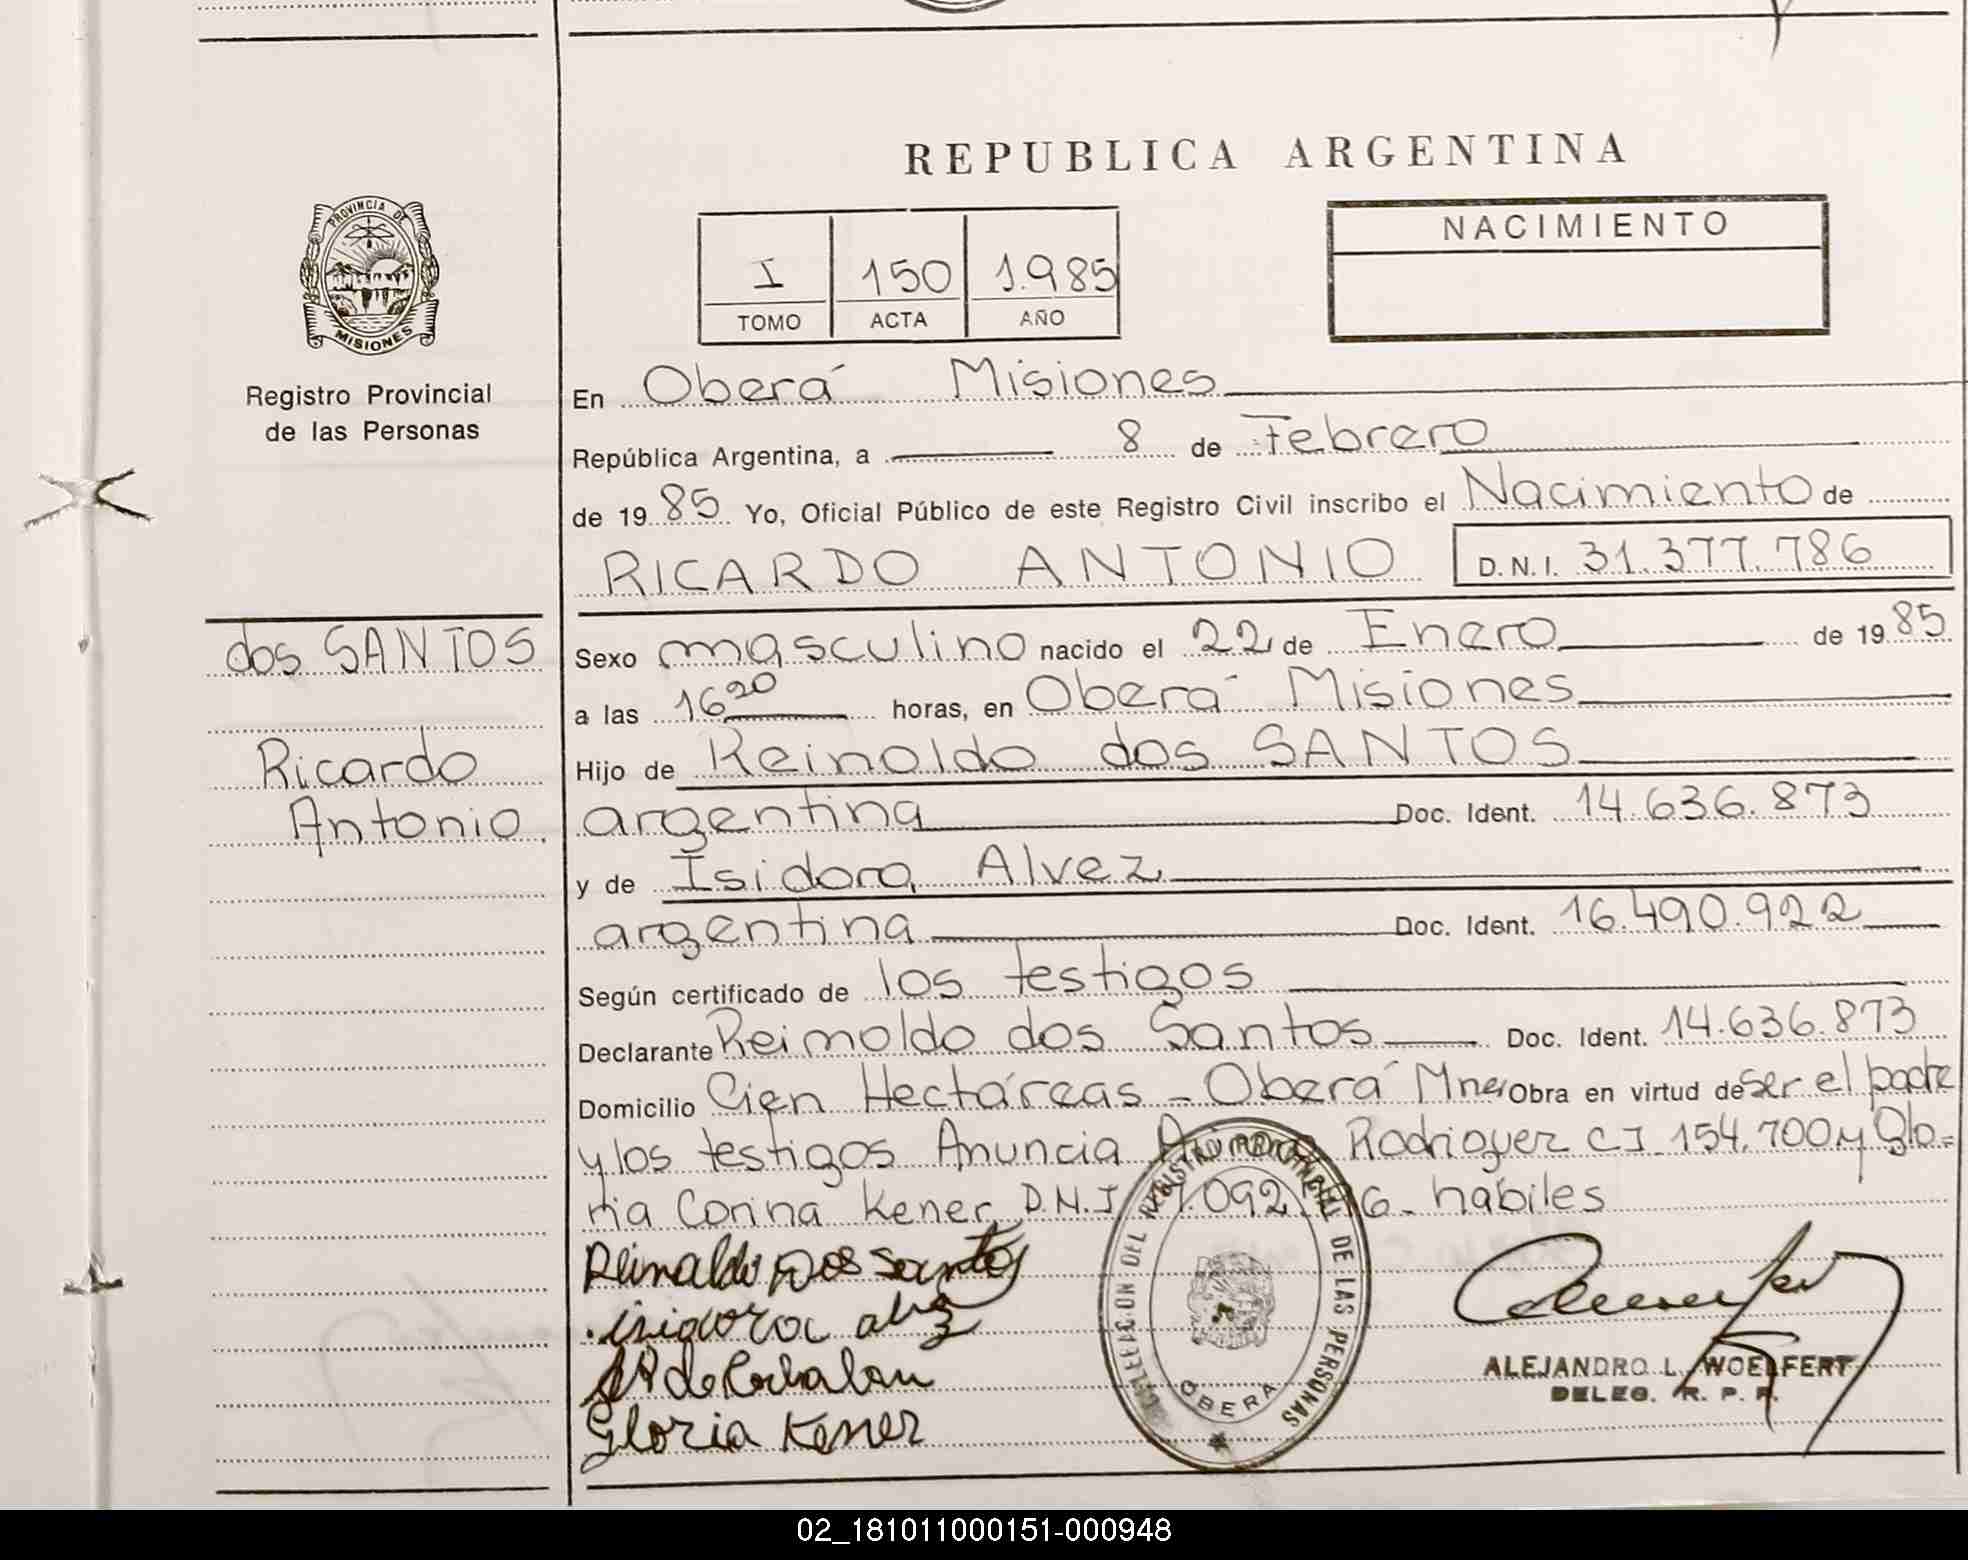 REPUBLICA ARGENTINA
PROVINCIA DE
MISIONES
Registro Provincial
de las Personas
I 150 1.985
TOMO ACTA AÑO
NACIMIENTO
En Oberá Misiones
República Argentina, a 8 de Febrero
de 1985 Yo, Oficial Público de este Registro Civil inscribo el Nacimiento de
RICARDO ANTONIO D.N.I. 31.377.786
dos SANTOS
Ricardo
Antonio
Sexo masculino nacido el 22 de Enero de 1985
a las 16 20 horas, en Oberá Misiones
Hijo de Reinoldo dos SANTOS
argentina Doc. Ident. 14.636.873
y de Isidora Alvez
argentina Doc. Ident. 16.490.922
Según certificado de los testigos
Declarante Reinoldo dos Santos Doc. Ident. 14.636.873
Domicilio Cien Hectáreas - Oberá Mnes Obra en virtud de ser el padre
y los testigos Anuncia Rodriguez CI 154.700 y Glo=
ria Corina Kener D.N.I. habiles
Reinaldo Dos Santos
isidora alvez
Gloria Kener
DELEGACION DEL REGISTRO PROVINCIAL DE LAS PERSONAS
OBERA
ALEJANDRO L. WOELFERT
DELEG. R. P. P.
02_181011000151-000948